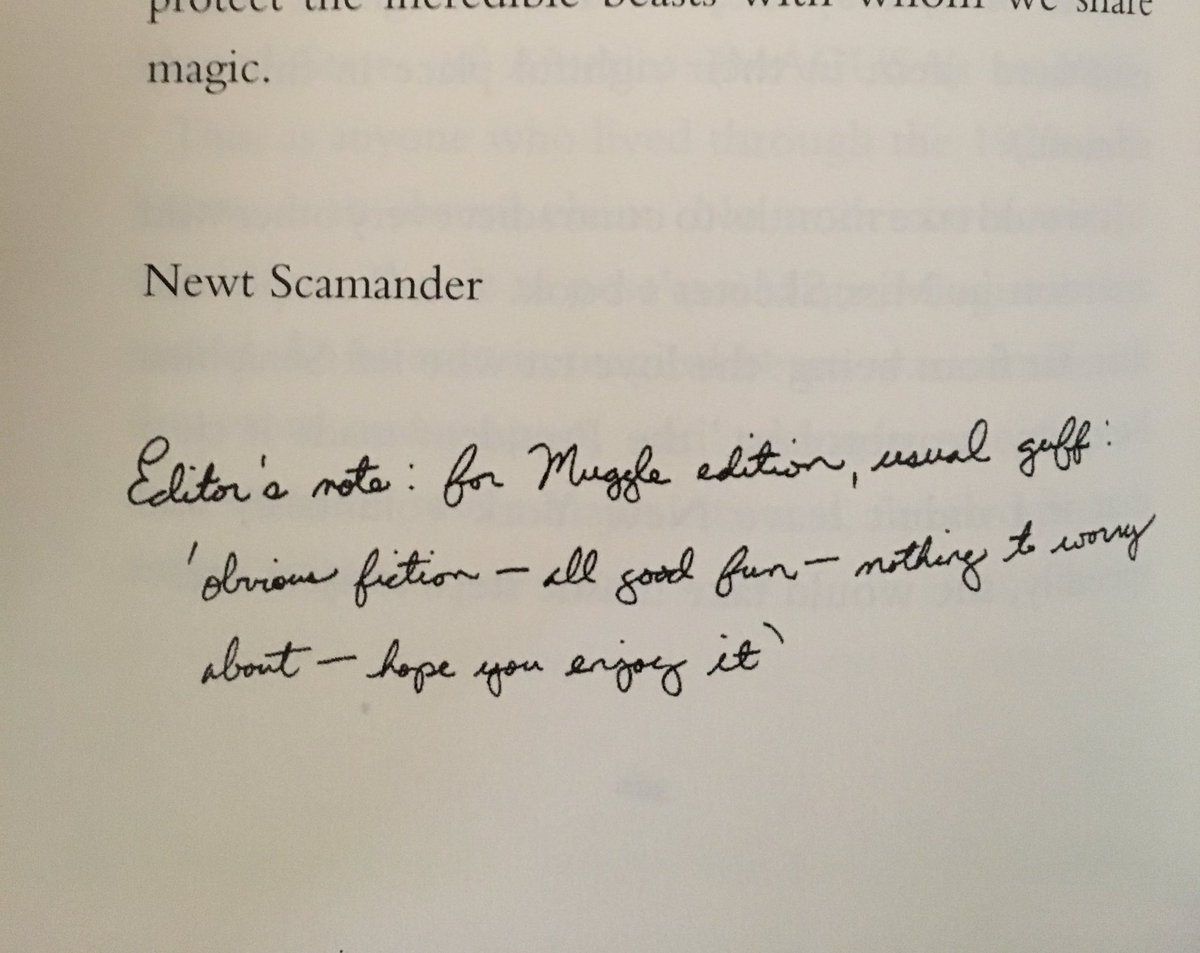 protect the incredible beasts with whom we share
magic.
Newt Scamander
Editor's note: for Muggle edition, usual guff:
'obvious fiction – all good fun – nothing to worry
about – hope you enjoy it'